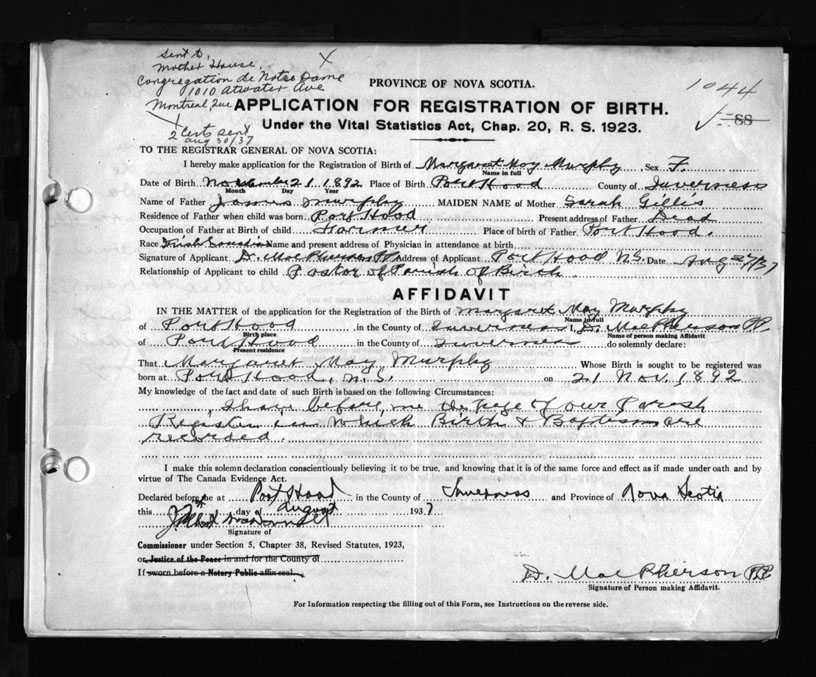 sent to
Mother House X
Congregation de Notre Dame
1010 Atwater Ave
Montreal Que
2 Certs sent
aug 30/37
1044
88
PROVINCE OF NOVA SCOTIA.
APPLICATION FOR REGISTRATION OF BIRTH.
Under the Vital Statistics Act, Chap. 20, R. S. 1923.
TO THE REGISTRAR GENERAL OF NOVA SCOTIA:
I hereby make application for the Registration of Birth of Margaret May Murphy Sex F.
Name in full
Date of Birth November 21 1892 Place of Birth Port Hood County of Inverness
Month Day Year
Name of Father James Murphy MAIDEN NAME of Mother Sarah Gillis
Residence of Father when child was born Port Hood Present address of Father Dead
Occupation of Father at Birth of child Farmer Place of birth of Father Port Hood.
Race Irish Canadian Name and present address of Physician in attendance at birth
Signature of Applicant D. MacPherson PP Address of Applicant Port Hood N.S. Date Aug 27/37
Relationship of Applicant to child Pastor of Parish of Birth
AFFIDAVIT
IN THE MATTER of the application for the Registration of the Birth of Margaret May Murphy
Name in full
of Port Hood in the County of Inverness I, D. MacPherson PP.
Birth place Name of person making Affidavit
of Port Hood in the County of Inverness do solemnly declare:
Present residence
That Margaret May Murphy Whose Birth is sought to be registered was
born at Port Hood, N.S. on 21 Nov. 1892
My knowledge of the fact and date of such Birth is based on the following Circumstances:
I have before me the page of our Parish
Register in which Birth & Baptism are
recorded.
I make this solemn declaration conscientiously believing it to be true, and knowing that it is of the same force and effect as if made under oath and by
virtue of The Canada Evidence Act.
Declared before me at Port Hood in the County of Inverness and Province of Nova Scotia
this day of August 1937
Signature of
Commissioner under Section 5, Chapter 38, Revised Statutes, 1923,
or Justice of the Peace in and for the County of
If sworn before a Notary Public affix seal.
D. MacPherson P.P.
Signature of Person making Affidavit.
For Information respecting the filling out of this Form, see Instructions on the reverse side.